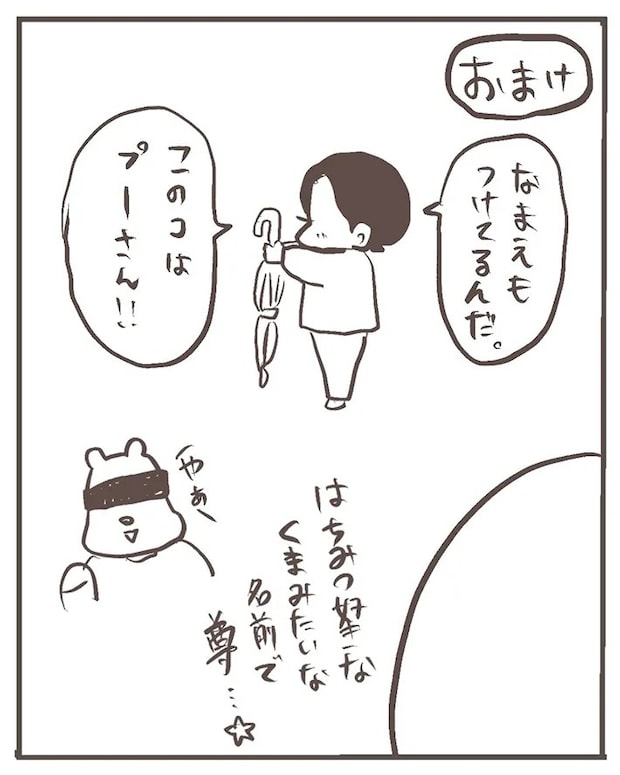 おまけ
なまえも
つけてるんだ。
このコは
プーさん!!
やぁ
はちみつ好きな
くまみたいな
名前で
尊…☆